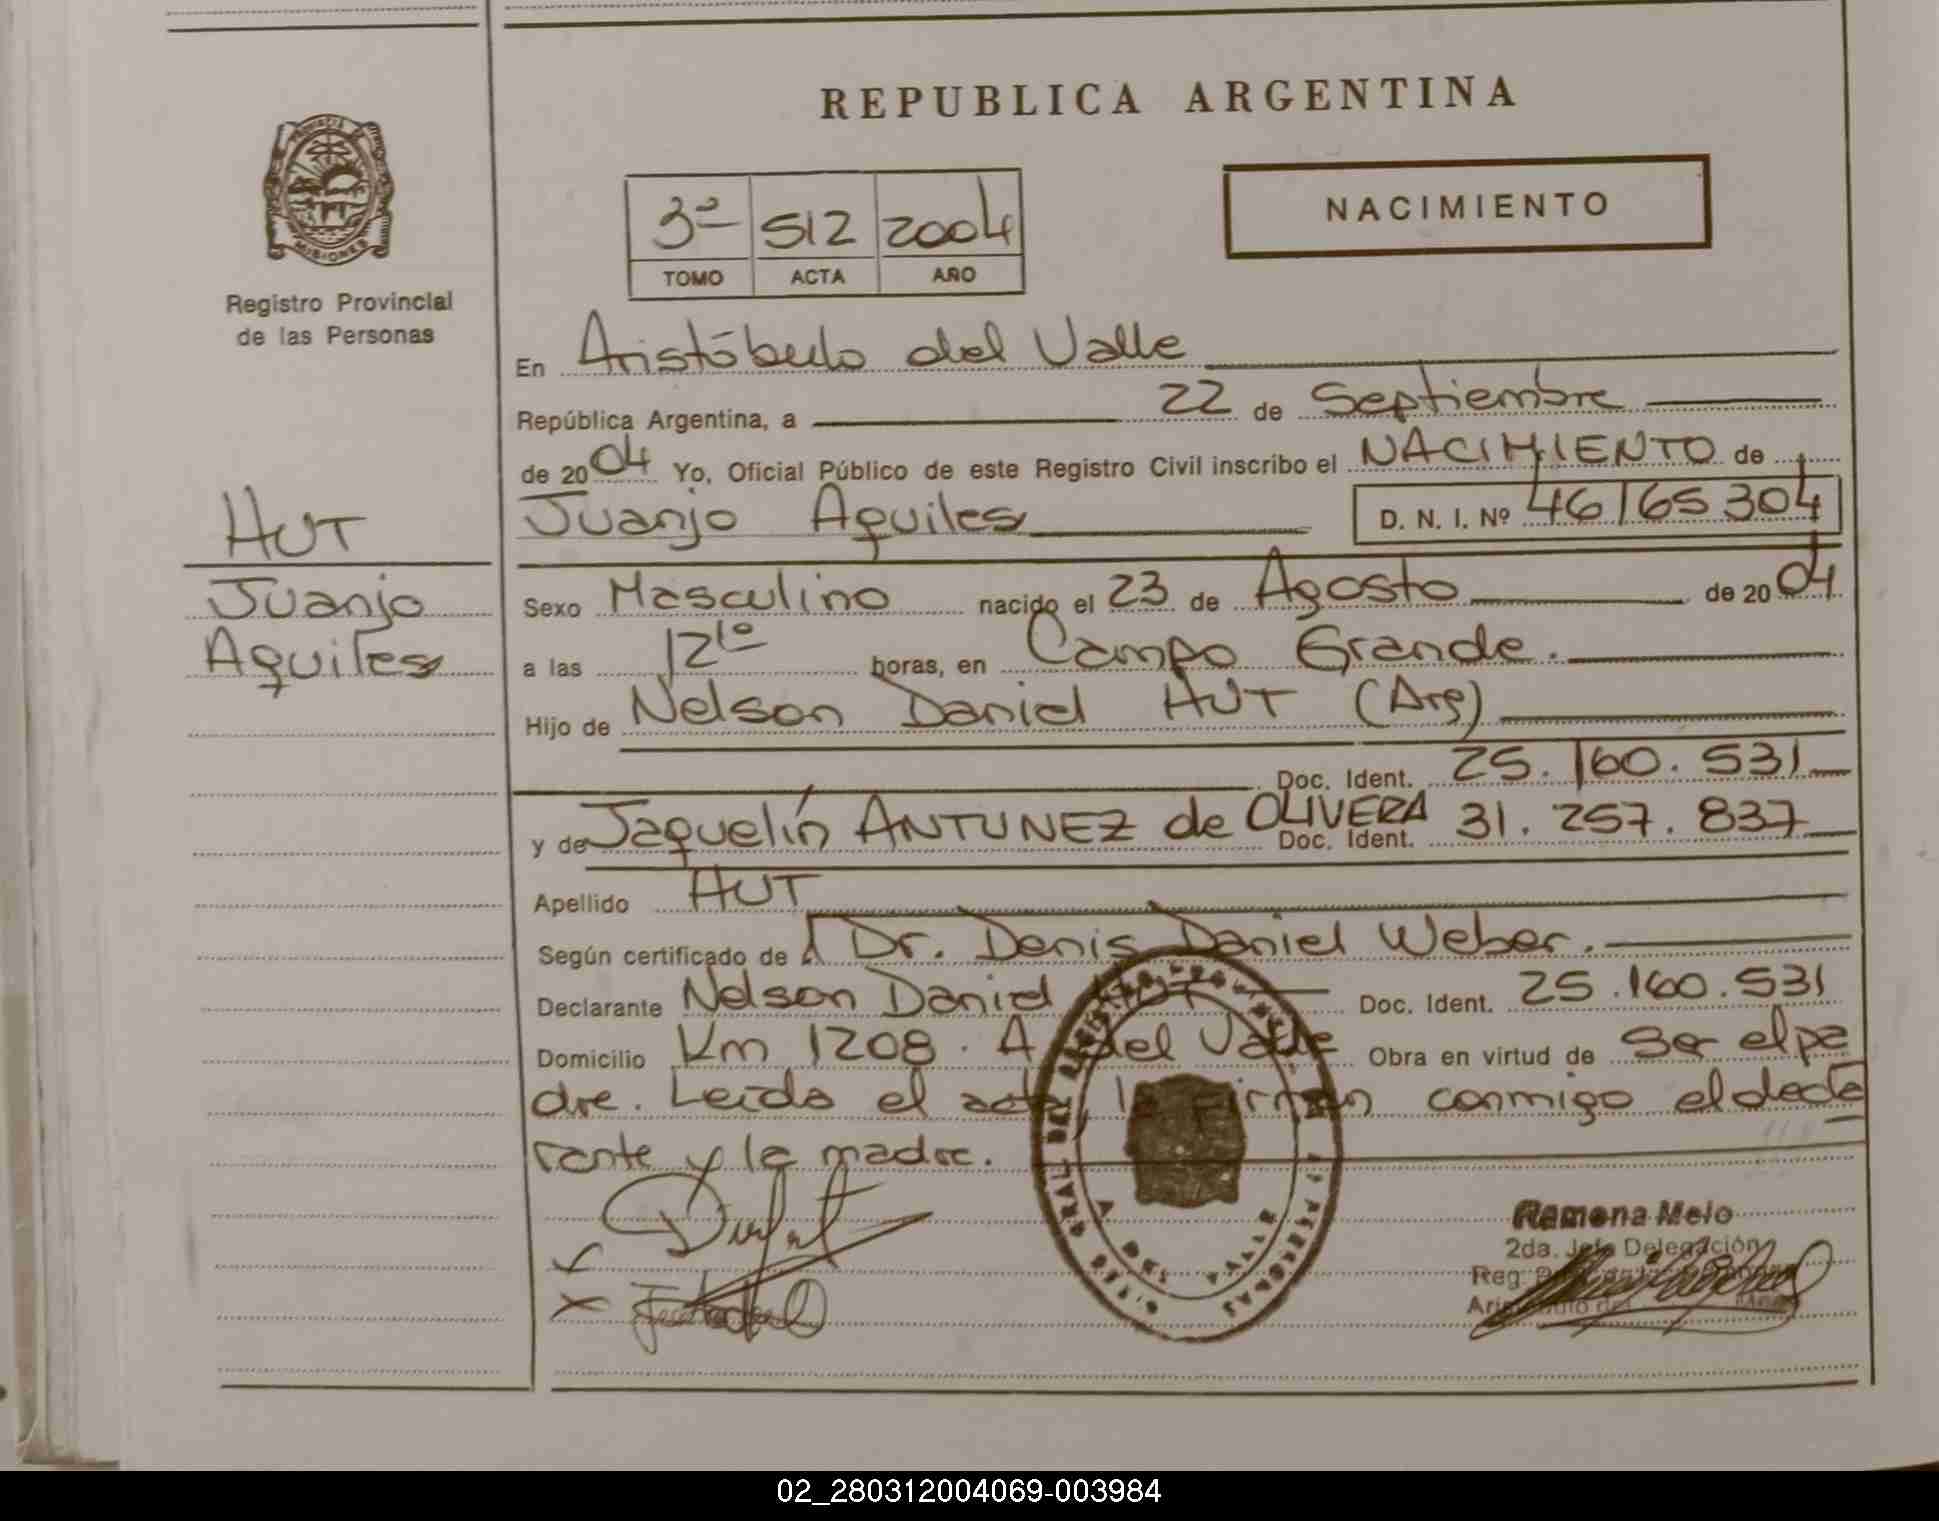 REPUBLICA ARGENTINA
PROVINCIA
MISIONES
Registro Provincial
de las Personas
3º 512 2004
TOMO ACTA AÑO
NACIMIENTO
En Aristóbulo del Valle
República Argentina, a 22 de Septiembre
de 2004 Yo, Oficial Público de este Registro Civil inscribo el NACIMIENTO de
Juanjo Aquiles D. N. I. Nº 46165304
HUT
Juanjo
Aquiles
Sexo Masculino nacido el 23 de Agosto de 2004
a las 12¹⁰ horas, en Campo Grande.
Hijo de Nelson Daniel HUT (Arg)
Doc. Ident. 25.160.531
y de Jaquelín ANTUNEZ de OLIVERA Doc. Ident. 31.257.837
Apellido HUT
Según certificado de Dr. Denis Daniel Weber.
Declarante Nelson Daniel HUT Doc. Ident. 25.160.531
Domicilio Km 1208. A. del Valle Obra en virtud de ser el pa
dre. Leída el acta, la firman conmigo el decla
rante y la madre.
Ramona Melo
2da. Jefa Delegación
Reg.
02_280312004069-003984